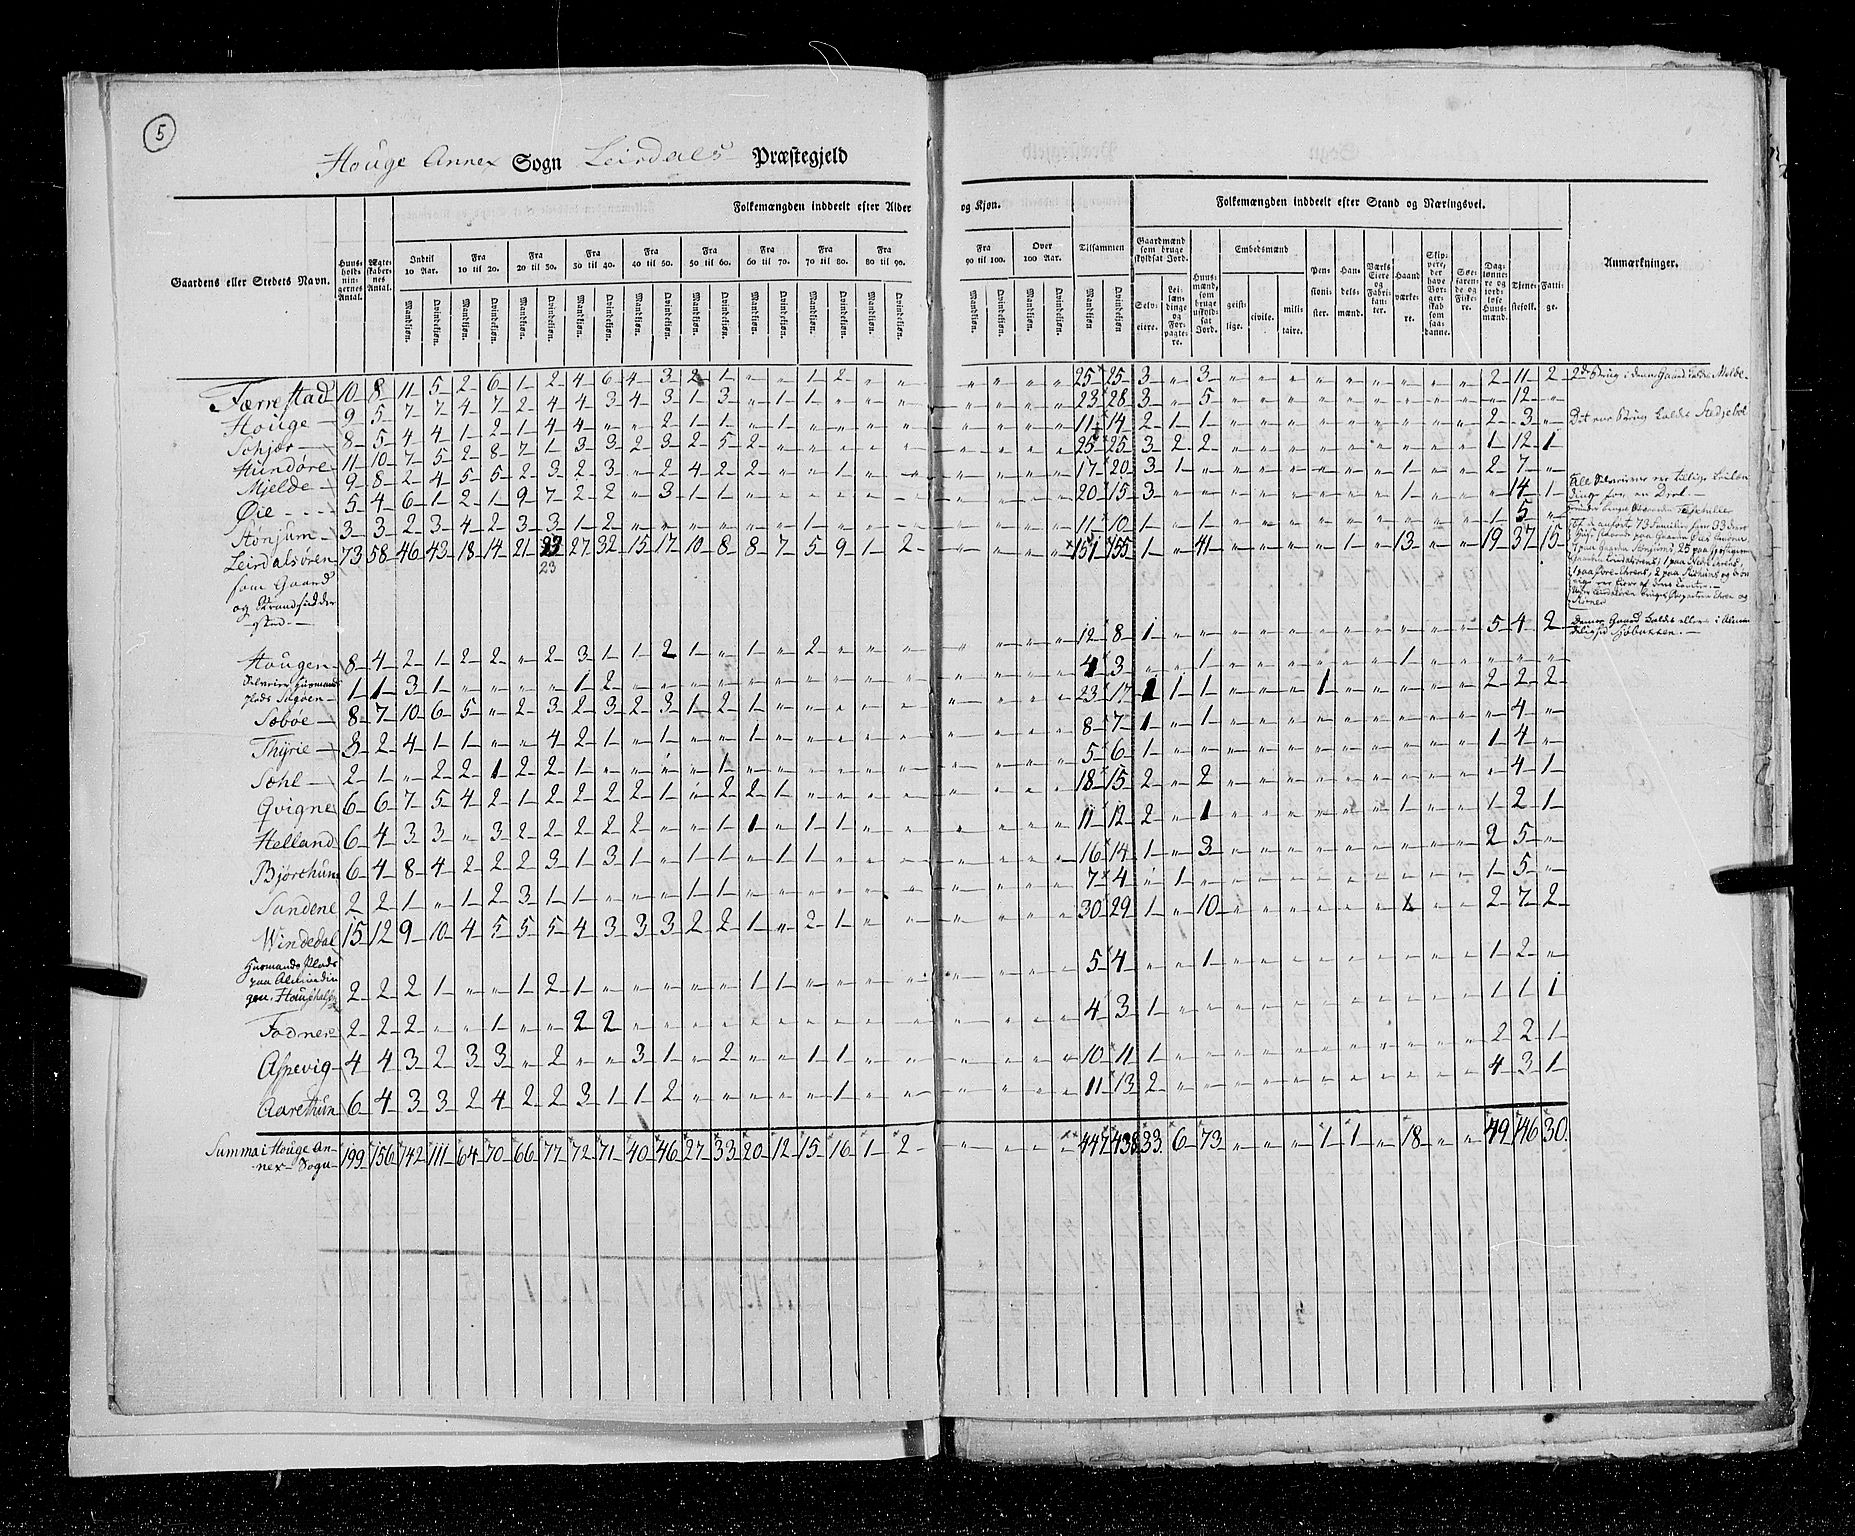 5
Houge Annex Sogn Leirdals Præstegjeld
Folkemængden inddeelt efter Alder og Kjøn. Folkemængden inddeelt efter Stand og Næringsvei.
Gaardens eller Stedets Navn. Huusholdningernes Antal. Ægteskabernes Antal. Indtil 10 Aar. Fra 10 til 20. Fra 20 til 30. Fra 30 til 40. Fra 40 til 50. Fra 50 til 60. Fra 60 til 70. Fra 70 til 80. Fra 80 til 90. Fra 90 til 100. Over 100 Aar. Tilsammen Gaardmænd som bruge skyldsat Jord. Huusmænd, som bruge uskyldsat Jord. Embedsmænd Pensionister. Handelsmænd. Værks Eiere og Fabrikanter. Haandværkere. Skippere, der have Borgerskab som saadanne. Søefarende og Fiskere. Daglønnere og jordløse Huusmænd. Tjenestefolk. Fattige. Anmærkninger.
Mandkjøn. Qvindekjøn. Mandkjøn. Qvindekjøn. Mandkjøn. Qvindekjøn. Mandkjøn. Qvindekjøn. Mandkjøn. Qvindekjøn. Mandkjøn. Qvindekjøn. Mandkjøn. Qvindekjøn. Mandkjøn. Qvindekjøn. Mandkjøn. Qvindekjøn. Mandkjøn. Qvindekjøn. Mandkjøn. Qvindekjøn. Mandkjøn Qvindekjøn Selveiere. Leilændinge og Forpagtere. geistlige. civile. militaire.
Færrestad 10 8 11 5 2 6 1 2 4 6 4 3 2 1 " " 1 2 " " " " " " 25 25 3 " 3 " " " " " " " " " 2 11 2
Houge 9 5 7 7 4 7 2 4 4 3 4 3 1 3 " 1 1 " " " " " " " 23 28 3 " 5 " " " " " " " " " " 12 "
Schjær 8 5 4 4 1 2 1 4 4 " " 2 1 1 " " " " " " " " " " 11 14 2 1 1 " " " " " " " " " 2 3 "
Hundøre 11 10 7 5 2 8 7 1 3 3 2 3 2 5 2 " " " " " " " " " 25 25 3 2 2 " " " " " " " " " 1 12 1
Mjelde 9 8 2 4 5 5 2 3 2 3 " 2 4 2 2 " " 1 " " " " " " 17 20 3 1 " " " " " " " 1 " " 2 7 "
Øie 5 4 6 1 2 1 9 7 2 2 " 3 1 1 " " " " " " " " " " 20 15 3 " " " " " " " " 1 " " " 14 1
Stønjum 3 3 2 3 4 2 3 3 1 2 " " " " " " " " " " " " " " 11 10 1 " 1 " " " " " " " " " 1 5 "
Leirdalsøren 73 58 46 43 18 14 21 23 27 32 15 17 10 8 8 7 5 9 1 2 " " " " 151 155 1 " 41 " " " " 1 " 13 " " 19 37 15
23
som Gaard
og Strandsidder
sted
Hougen 8 4 2 1 2 2 " 2 3 1 1 2 1 " 1 " 2 " " " " " " " 12 8 1 " " " " " " " " " " " 5 4 2
1 1 3 1 " " " " 1 2 " " " " " " " " " " " " " " 4 3 " " 1 " " " " " " 1 " " " " "
Søbøe 8 7 10 6 5 " 2 3 2 3 2 3 1 2 1 " " " " " " " " " 23 17 1 1 1 " " " 1 " " " " " 2 2 2
Thyrie 3 2 4 1 1 " " 4 2 1 " 1 " " 1 " " " " " " " " " 8 7 1 " 1 " " " " " " " " " " 4 "
Sæhl 2 1 " 2 2 1 2 2 1 " " " " 1 " " " " " " " " " " 5 6 1 " " " " " " " " " " " 1 4 "
Qvigne 6 6 7 5 4 2 1 2 2 2 2 1 " 2 2 1 " " " " " " " " 18 15 2 " 2 " " " " " " " " " " 4 1
Helland 6 4 3 3 " 3 2 2 2 2 2 " " 1 1 " 1 1 " " " " " " 11 12 2 " 1 " " " " " " 1 " " 1 2 1
Bjørthum 6 4 8 4 2 2 2 3 1 3 1 " 1 1 " 1 1 " " " " " " " 16 14 1 " 3 " " " " " " " " " 2 5 "
Sandene 2 2 1 " 1 2 3 1 1 " " " 1 1 " " " " " " " " " " 7 4 " 1 " " " " " " " " " " 1 5 "
Windedal 15 12 9 10 4 5 5 5 4 3 3 3 2 2 1 " 2 1 " " " " " " 30 29 1 " 10 " " " " " " 1 " " 2 7 2
Huusmands Plads
paa Almindin
gen 2 2 2 1 " " 1 2 1 " " " " " 1 1 " " " " " " " " 5 4 " " 1 " " " " " " " " " 1 2 "
Fodnes 2 2 2 " " 1 " " 2 2 " " " " " " " " " " " " " " 4 3 1 " " " " " " " " " " " 1 1 1
Aspevig 4 4 3 2 3 3 " 2 " " 3 1 " 2 " " 1 1 " " " " " " 10 11 1 " " " " " " " " " " " 2 2 1
Aarethun 6 4 3 3 2 4 2 2 3 1 1 2 " " " " " 1 " " " " " " 11 13 2 " " " " " " " " " " " 4 3 1
Summa i Houge An-
nex Sogn 199 156 142 111 64 70 66 77 72 71 40 46 27 33 20 12 15 16 1 2 " " " " 447 438 33 6 73 " " " 1 1 " 18 " " 49 146 30.